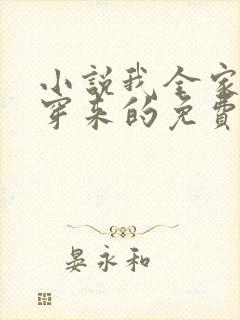 小說我全家
穿来的免費
晏永和